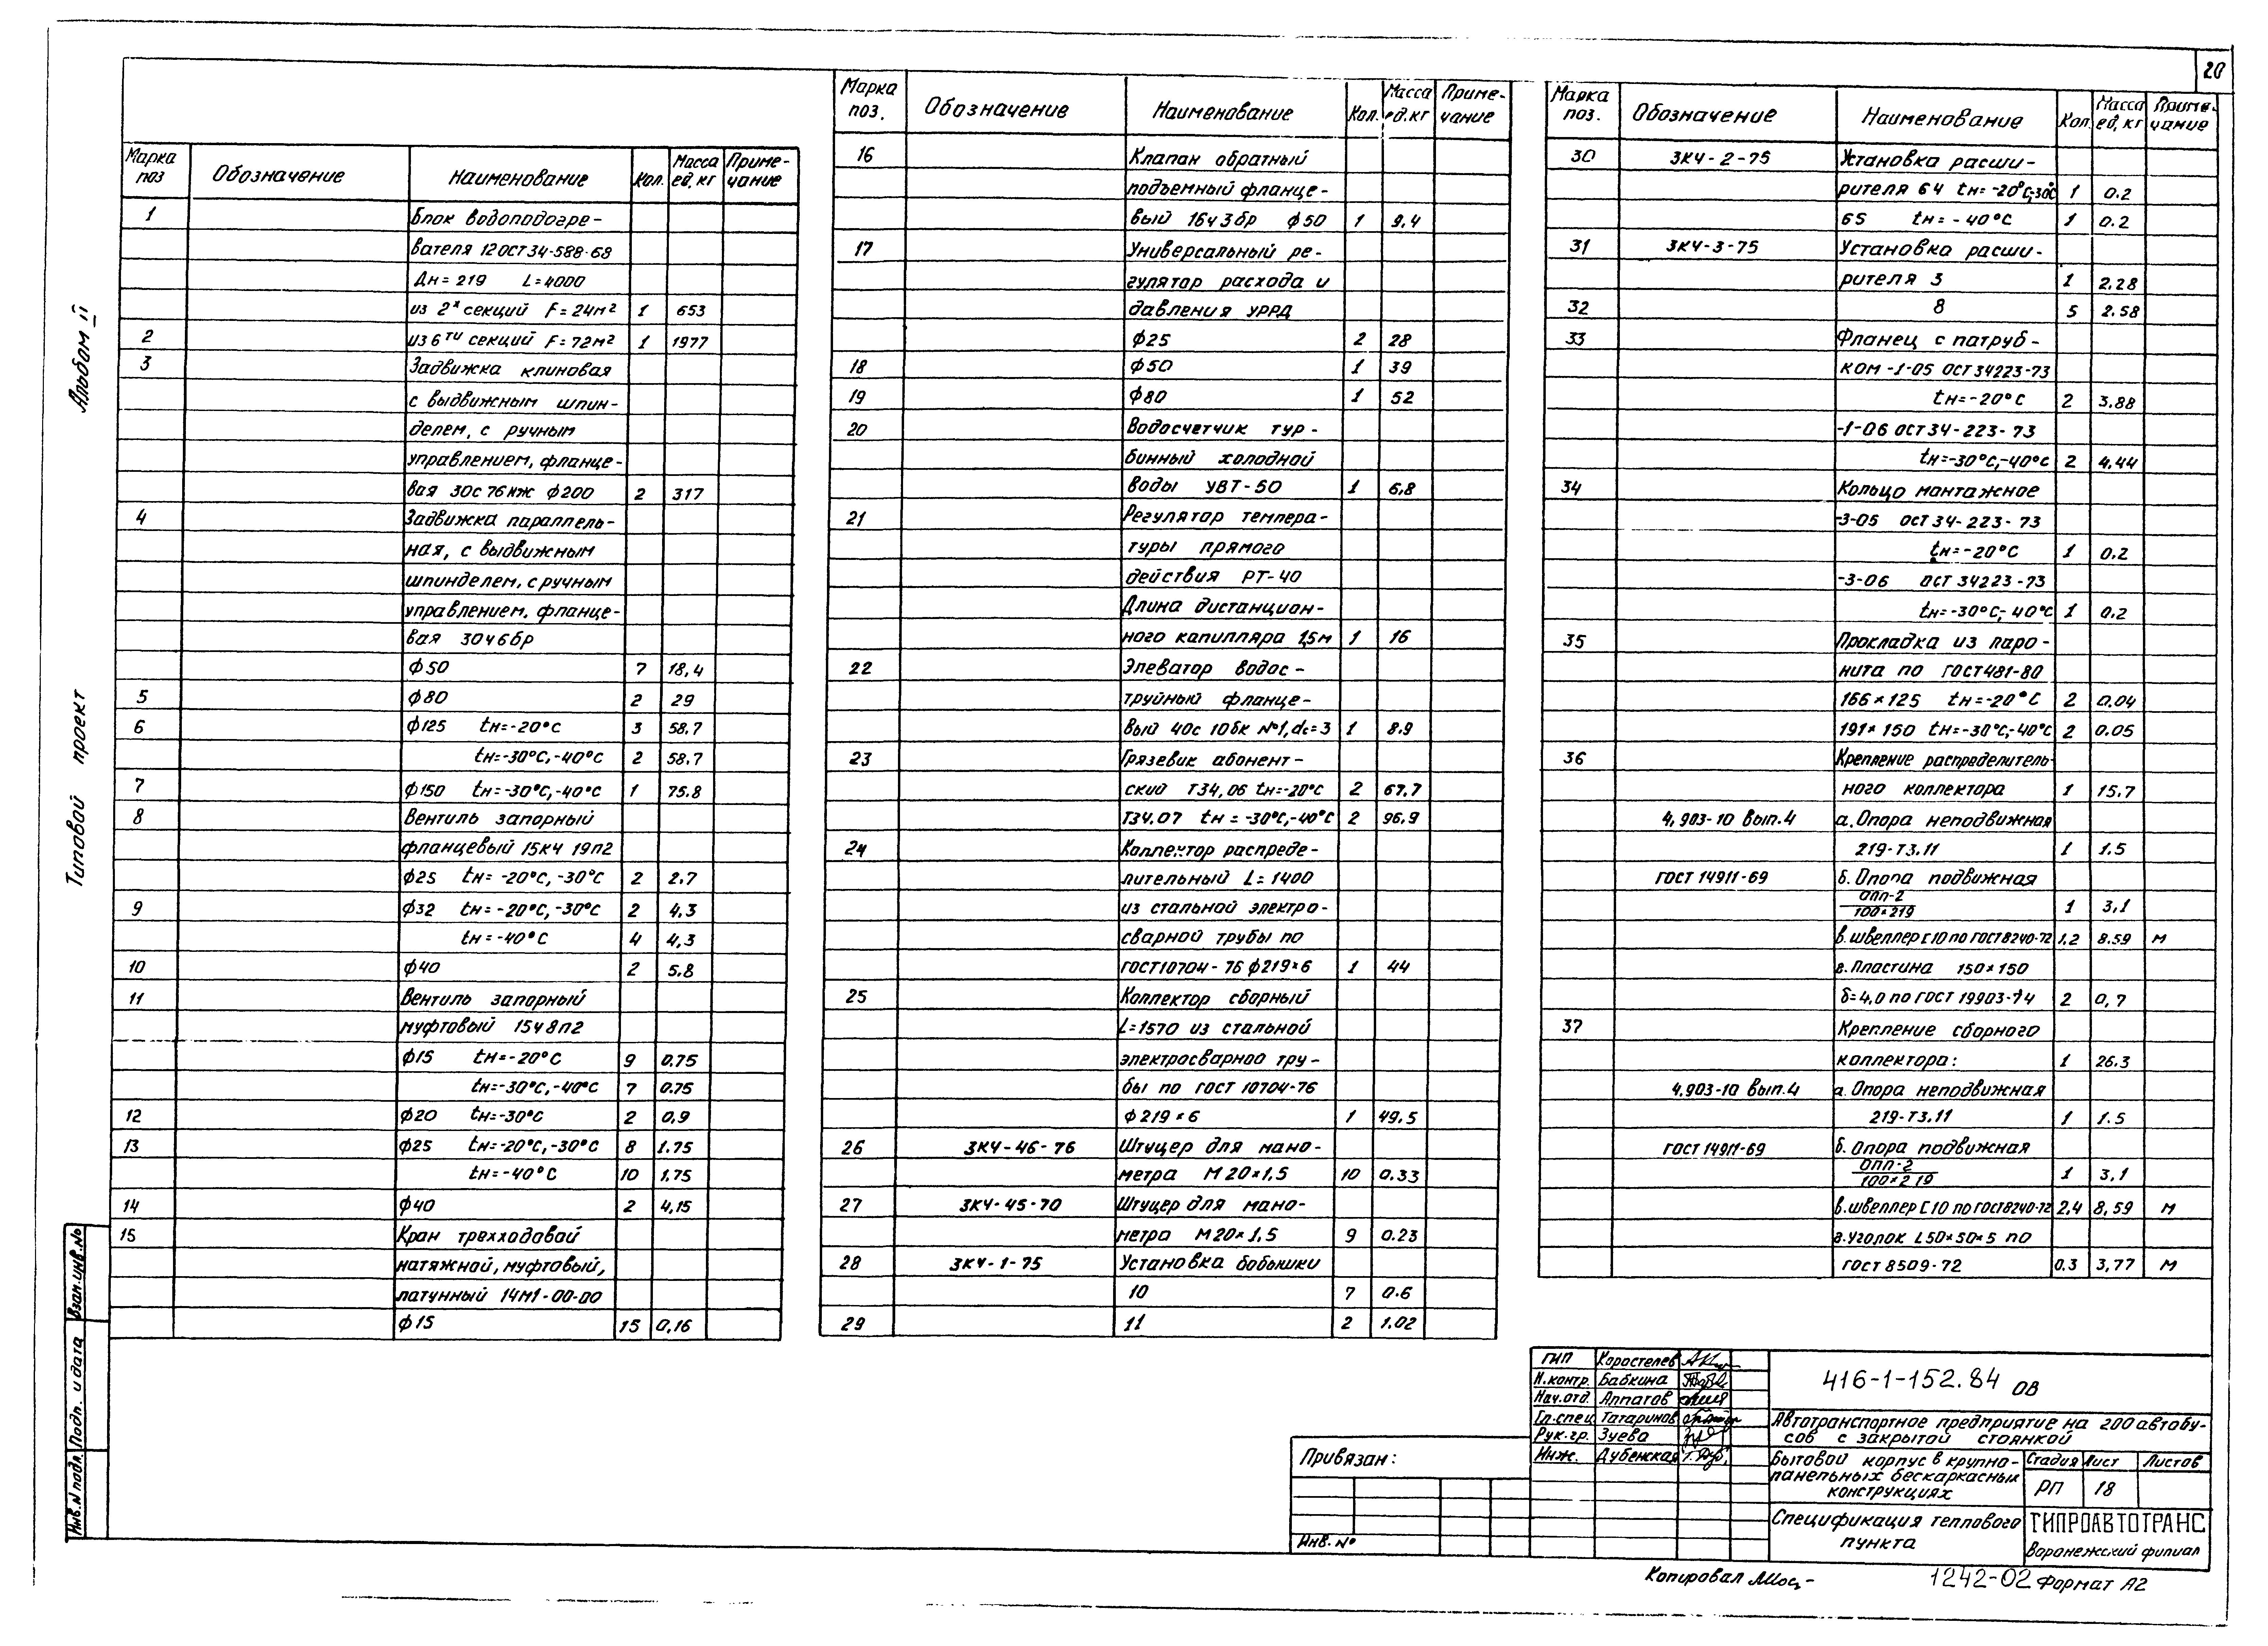 20
Альбом II
Типовой проект
Марка поз Обозначение Наименование Кол. Масса ед. кг Примечание
1 Блок водоподогре-
вателя 12 ОСТ 34-588-68
Дн=219 L=4000
из 2х секций F=24м² 1 653
2 из 6ти секций F=72м² 1 1977
3 Задвижка клиновая
с выдвижным шпин-
делем, с ручным
управлением, фланце-
вая 30с76нж ф200 2 317
4 Задвижка параллель-
ная, с выдвижным
шпинделем, с ручным
управлением, фланце-
вая 30ч6бр
ф50 7 18,4
5 ф80 2 29
6 ф125 tн=-20°С 3 58.7
tн=-30°С,-40°С 2 58.7
7 ф150 tн=-30°С,-40°С 1 75.8
8 Вентиль запорный
фланцевый 15кч 19п2
ф25 tн= -20°С, -30°С 2 2.7
9 ф32 tн=-20°С,-30°С 2 4,3
tн=-40°С 4 4,3
10 ф40 2 5.8
11 Вентиль запорный
муфтовый 15ч8п2
ф15 tн=-20°С 9 0.75
tн=-30°С,-40°С 7 0.75
12 ф20 tн=-30°С 2 0,9
13 ф25 tн=-20°С,-30°С 8 1.75
tн=-40°С 10 1,75
14 ф40 2 4,15
15 Кран трехходовой
натяжной, муфтовый,
латунный 14М1-00-00
ф15 15 0,16
Марка поз. Обозначение Наименование Кол. Масса ед. кг Примечание
16 Клапан обратный
подъемный фланце-
вый 16ч3бр ф50 1 9,4
17 Универсальный ре-
гулятор расхода и
давления УРРД
ф25 2 28
18 ф50 1 39
19 ф80 1 52
20 Водосчетчик тур-
бинный холодной
воды УВТ-50 1 6,8
21 Регулятор темпера-
туры прямого
действия РТ-40
Длина дистанцион-
ного капилляра 1,5м 1 16
22 Элеватор водос-
труйный фланце-
вый 40с 10бк №1, dс=3 1 8.9
23 Грязевик абонент-
ский Т34.06 tн=-20°С 2 67.7
Т34.07 tн=-30°С,-40°С 2 96,9
24 Коллектор распреде-
лительный L=1400
из стальной электро-
сварной трубы по
ГОСТ10704-76 ф219×6 1 44
25 Коллектор сборный
L=1570 из стальной
электросварной тру-
бы по ГОСТ 10704-76
ф219×6 1 49,5
26 ЗКЧ-46-76 Штуцер для мано-
метра М20×1,5 10 0.33
27 ЗКЧ-45-70 Штуцер для мано-
метра М20×1,5 9 0.23
28 ЗКЧ-1-75 Установка бобышки
10 7 0.6
29 11 2 1.02
Марка поз. Обозначение Наименование Кол. Масса ед. кг Примечание
30 ЗКЧ-2-75 Установка расши-
рителя 64 tн=-20°С,-30°С 1 0.2
65 tн=-40°С 1 0.2
31 ЗКЧ-3-75 Установка расши-
рителя 3 1 2.28
32 8 5 2.58
33 Фланец с патруб-
ком -1-05 ОСТ 34223-73
tн=-20°С 2 3.88
-1-06 ОСТ 34-223-73
tн=-30°С,-40°С 2 4,44
34 Кольцо монтажное
-3-05 ОСТ 34-223-73
tн=-20°С 1 0.2
-3-06 ОСТ 34223-73
tн=-30°С,-40°С 1 0.2
35 Прокладка из паро-
нита по ГОСТ481-80
166×125 tн=-20°С 2 0.04
191×150 tн=-30°С,-40°С 2 0.05
36 Крепление распределитель-
ного коллектора 1 15.7
4,903-10 Вып.4 а. Опора неподвижная
219-Т3.11 1 1.5
ГОСТ 14911-69 б. Опора подвижная
ОПП-2
100×219 1 3,1
в. швеллер [10 по ГОСТ8240-72 1,2 8.59 м
г. Пластина 150×150
δ=4,0 по ГОСТ 19903-74 2 0,7
37 Крепление сборного
коллектора: 1 26.3
4.903-10 Вып.4 а. Опора неподвижная
219-Т3.11 1 1.5
ГОСТ 14911-69 б. Опора подвижная
ОПП-2
100×219 1 3,1
в. швеллер [10 по ГОСТ8240-72 2,4 8,59 м
г. Уголок L50×50×5 по
ГОСТ 8509-72 0.3 3,77 м
Взам.инв.№
Подп. и дата
Инв.№ подл.
Привязан:
Инв. №
ГИП Коростелев
Н.контр. Бабкина
Нач.отд. Аппатов
Гл.спец Татаринов
Рук.гр. Зуева
Инж. Дубенская
416-1-152.84 ОВ
Автотранспортное предприятие на 200 автобу-
сов с закрытой стоянкой
Бытовой корпус в крупно-
панельных бескаркасных
конструкциях
Стадия Лист Листов
РП 18
Спецификация теплового
пункта
ГИПРОАВТОТРАНС
Воронежский филиал
Копировал
1242-02 Формат А2